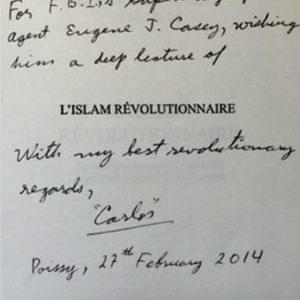 For F.B.I.'s Supervisory
agent Eugene J. Casey, wishing
him a deep lecture of
L'ISLAM RÉVOLUTIONNAIRE
With my best revolutionary
regards,
"Carlos"
Poissy, 27th February 2014